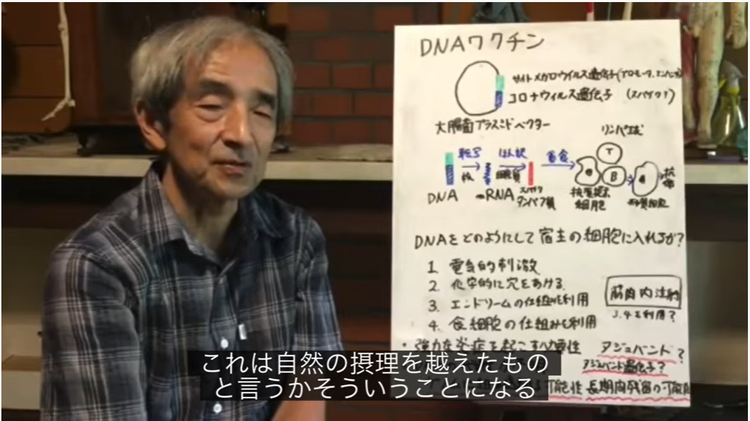 DNAワクチン
サイトメガロウイルス遺伝子(プロモータ、エンハンサ)
コロナウイルス遺伝子 (スパイク?)
大腸菌プラスミドベクター
リンパ球
転写
核
ほん訳
細胞質
貪食
T
B
DNA
mRNA
スパイク
タンパク質
抗原提示
細胞
抗体
形質細胞
DNAをどのようにして宿主の細胞に入れるか?
1. 電気的刺激
2. 化学的に穴をあける
3. エンドソームの仕組を利用
4. 食細胞の仕組みを利用
筋肉内注射
3.4を利用?
・強力な炎症を起こす必要性
アジュバンド?
アジュバンド遺伝子?
可能性 長期内残留の可能
これは自然の摂理を越えたもの
と言うかそういうことになる